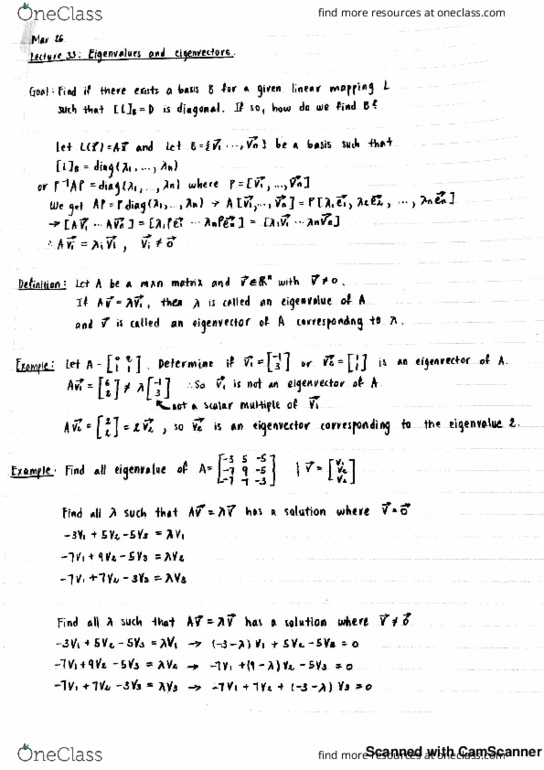 OneClass find more resources at oneclass.com
Mar 26
Lecture 33: Eigenvalues and eigenvectors.
Goal: Find if there exists a basis B for a given linear mapping L
such that [L]_B = D is diagonal. If so, how do we find B?
Let L(x⃗) = Ax⃗ and let B = {v⃗₁, ..., v⃗n} be a basis such that
[L]_B = diag(λ₁, ..., λn)
or P⁻¹AP = diag(λ₁, ..., λn) where P = [v⃗₁, ..., v⃗n]
We get AP = P diag(λ₁, ..., λn) → A[v⃗₁, ..., v⃗n] = P[λ₁e⃗₁, λ₂e⃗₂, ..., λne⃗n]
→ [Av⃗₁ ... Av⃗n] = [λ₁Pe⃗₁ ... λnPe⃗n] = [λ₁v⃗₁ ... λnv⃗n]
∴ Av⃗i = λiv⃗i, v⃗i ≠ 0⃗
Definition: Let A be a mxn matrix and v⃗ ∈ ℝⁿ with v⃗ ≠ 0.
If Av⃗ = λv⃗, then λ is called an eigenvalue of A
and v⃗ is called an eigenvector of A corresponding to λ.
Example: Let A = [0 2; 1 1]. Determine if v⃗₁ = [-1; 3] or v⃗₂ = [1; 1] is an eigenvector of A.
Av⃗₁ = [6; 2] ≠ λ[-1; 3] ∴ So v⃗₁ is not an eigenvector of A
not a scalar multiple of v⃗₁
Av⃗₂ = [2; 2] = 2v⃗₂, so v⃗₂ is an eigenvector corresponding to the eigenvalue 2.
Example: Find all eigenvalue of A = [-3 5 -5; -7 9 -5; -7 7 -3] } v⃗ =
Find all λ such that Av⃗ = λv⃗ has a solution where v⃗ = 0⃗
-3V₁ + 5V₂ - 5V₃ = λV₁
-7V₁ + 9V₂ - 5V₃ = λV₂
-7V₁ + 7V₂ - 3V₃ = λV₃
Find all λ such that Av⃗ = λv⃗ has a solution where v⃗ ≠ 0⃗
-3V₁ + 5V₂ - 5V₃ = λV₁ → (-3-λ)V₁ + 5V₂ - 5V₃ = 0
-7V₁ + 9V₂ - 5V₃ = λV₂ → -7V₁ + (9-λ)V₂ - 5V₃ = 0
-7V₁ + 7V₂ - 3V₃ = λV₃ → -7V₁ + 7V₂ + (-3-λ)V₃ = 0
Scanned with CamScanner
OneClass find more resources at oneclass.com